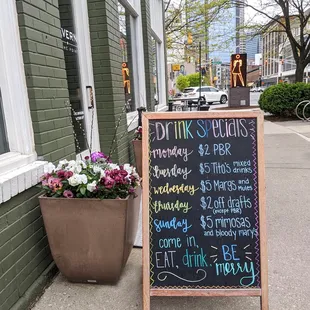 VERN
DRINK SPECIALS
monday $2 PBR
tuesday $5 Tito's mixed drinks
wednesday $5 Margs and mules
thursday $2 off drafts (except PBR)
sunday $5 mimosas and bloody mary's
come in,
EAT, drink, BE
merry